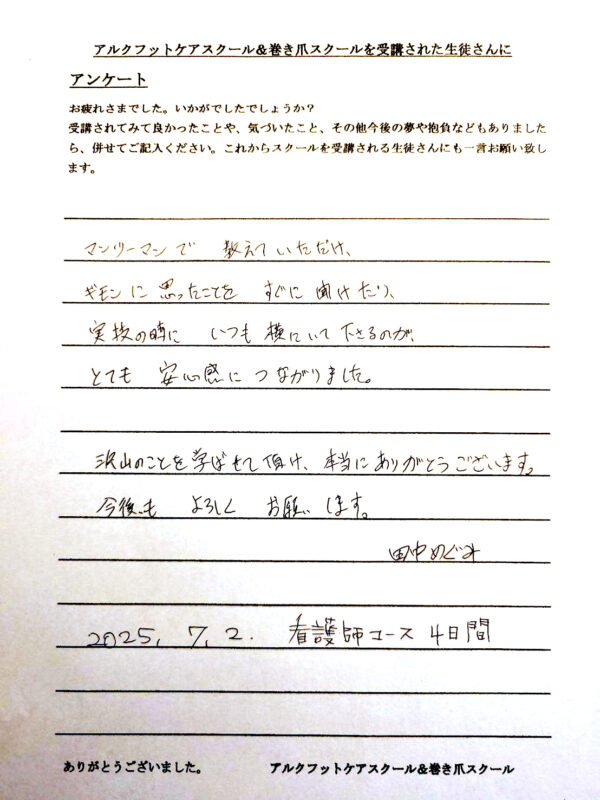 アルクフットケアスクール＆巻き爪スクールを受講された生徒さんに
アンケート
お疲れさまでした。いかがでしたでしょうか？
受講されてみて良かったことや、気づいたこと、その他今後の夢や抱負などもありました
ら、併せてご記入ください。これからスクールを受講される生徒さんにも一言お願い致し
ます。
マンツーマンで 教えていただけ、
ギモンに思ったことを すぐに聞けたり、
実技の時に いつも横にいて下さるのが、
とても 安心感に つながりました。
沢山のことを学ばせて頂け、本当にありがとうございます。
今後も よろしく お願いします。
田中めぐみ
2025, 7, 2. 看護師コース 4日間
ありがとうございました。 アルクフットケアスクール＆巻き爪スクール